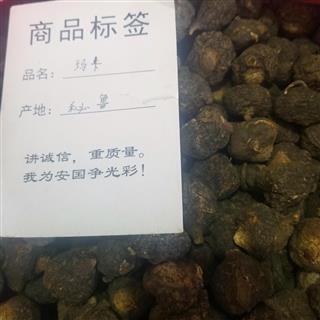 商品标签
品名：玛卡
产地：秘鲁
讲诚信，重质量。
我为安国争光彩！